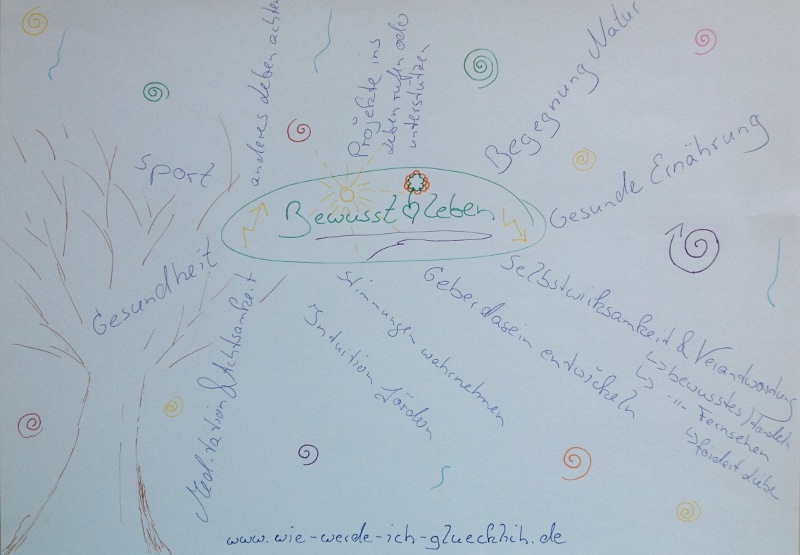 anderes Leben achten
Projekte ins
Leben rufen oder
unterstützen
Begegnung Natur
Sport
Gesunde Ernährung
Bewusst Leben
Gesundheit
Meditation & Achtsamkeit
Stimmungen wahrnehmen
Intuition fördern
Geberdasein entwickeln
Selbstwirksamkeit & Verantwortung
↳ bewusstes Handeln
↳ -"- Fernsehen
↳ fördert Liebe
www.wie-werde-ich-gluecklich.de